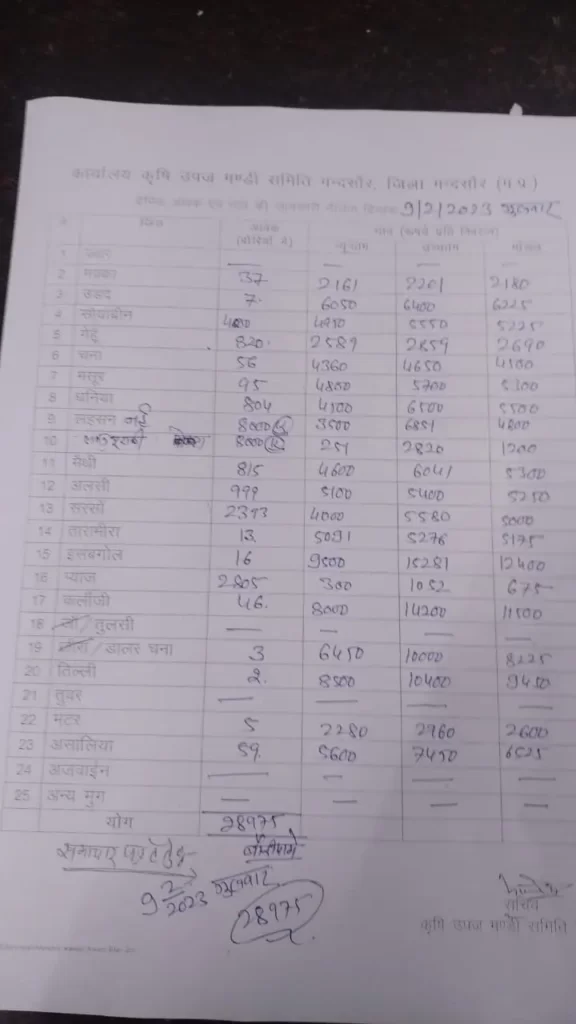 कार्यालय कृषि उपज मण्डी समिति मन्दसौर, जिला मन्दसौर (म.प्र.)
दिनांक 9/2/2023 गुरुवार
जिंस आवक (बोरियों में) भाव (रूपये प्रति क्विंटल)
न्यूनतम उच्चतम मॉडल
1 ज्वार — — — —
2 मक्का 37 2161 2201 2180
3 उडद 7. 6050 6400 6225
4 सोयाबीन 4950 5550 5225
5 गेहूं 820. 2589 2859 2690
6 चना 56 4360 4650 4500
7 मसूर 95 4800 5700 5300
8 धनिया 804 4500 6500 5500
9 लहसन नई 8000 3500 6851 4800
10 8000 251 2820 1200
11 मैथी 815 4600 6041 5300
12 अलसी 999 5100 5400 5250
13 सरसों 2393 4000 5580 5000
14 तारामीरा 13. 5091 5276 5175
15 इसबगोल 16 9500 15281 12400
16 प्याज 2805 300 1052 675
17 कलौंजी 46. 8000 14200 11500
18 जौ / तुलसी — — — —
19 जीरा / डालर चना 3 6450 10000 8225
20 तिल्ली 2. 8500 10400 9450
21 तुवर — — — —
22 मटर 5 2280 2960 2600
23 असालिया 59. 5600 7450 6525
24 अजवाईन — — — —
25 अन्य मुग — — — —
योग 28975
9 2/2023 गुरुवार
28975
सचिव
कृषि उपज मण्डी समिति